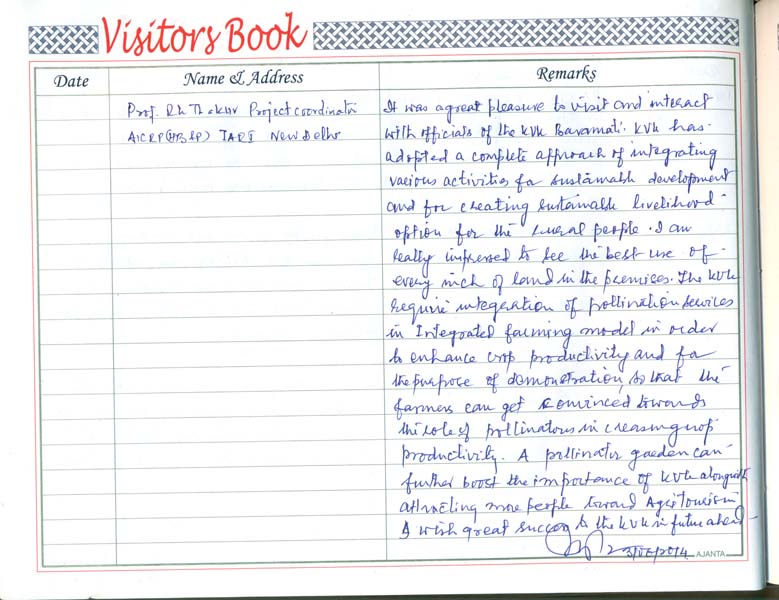 Visitors Book
Date
Name & Address
Remarks
Prof. R.K. Thakur Project coordinator
AICRP(HB&P) IARI New Delhi
It was a great pleasure to visit and interact
with officials of the KVK Baramati. KVK has
adopted a complete approach of integrating
various activities for sustainable development
and for creating sustainable livelihood
option for the rural people. I am
really impressed to see the best use of
every inch of land in the premises. The KVK
require integration of pollination services
in Integrated farming model in order
to enhance crop productivity and for
the purpose of demonstration, so that the
farmers can get convinced towards
the role of pollinators in creasing crop
productivity. A pollinator garden can
further boost the importance of KVK alongwith
attracting more people toward Agri Tourism
I wish great success to the KVK in future ahead
AJANTA